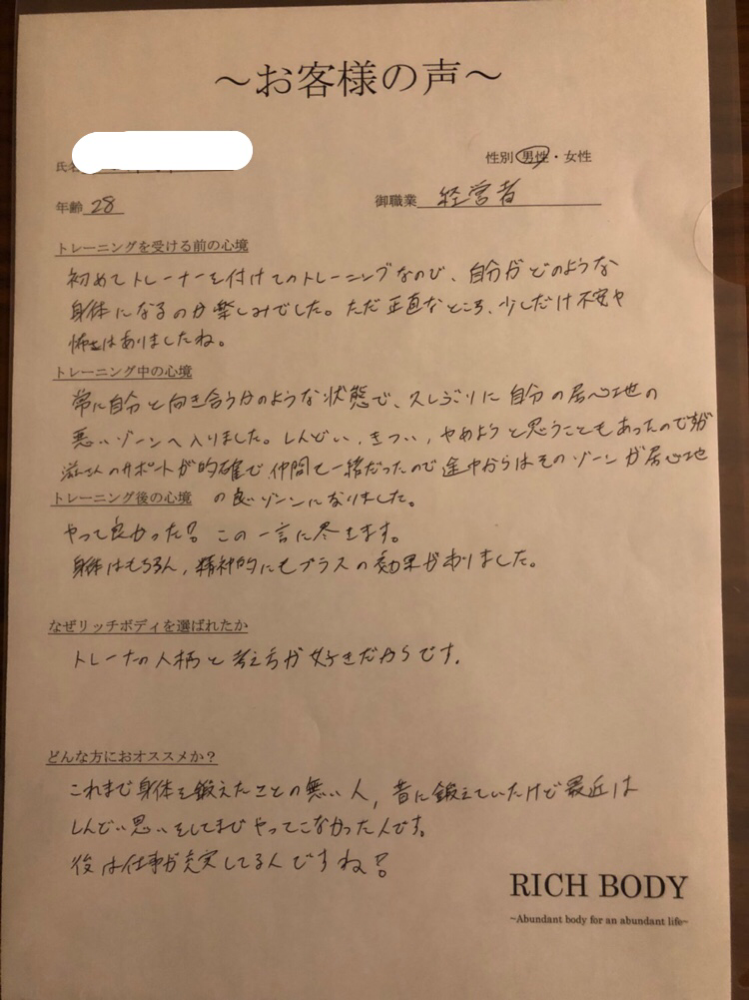 ～お客様の声～
氏名
性別 男性・女性
年齢 28
御職業 経営者
トレーニングを受ける前の心境
初めてトレーナーを付けてのトレーニングなので、自分がどのような
身体になるのか楽しみでした。ただ正直なところ、少しだけ不安や
怖さはありましたね。
トレーニング中の心境
常に自分と向き合うかのような状態で、久しぶりに自分の居心地の
悪いゾーンへ入りました。しんどい、きつい、やめようと思うこともあったのですが
さんのサポートが的確で仲間も一緒だったので途中からはそのゾーンが居心地
の良いゾーンになりました。
トレーニング後の心境
やって良かった!この一言に尽きます。
身体はもちろん、精神的にもプラスの効果がありました。
なぜリッチボディを選ばれたか
トレーナーの人柄と考え方が好きだからです。
どんな方におオススメか?
これまで身体を鍛えたことの無い人、昔に鍛えていたけど最近は
しんどい思いをしてまでやってこなかった人です。
後は仕事が充実してる人ですね!
RICH BODY
~Abundant body for an abundant life~